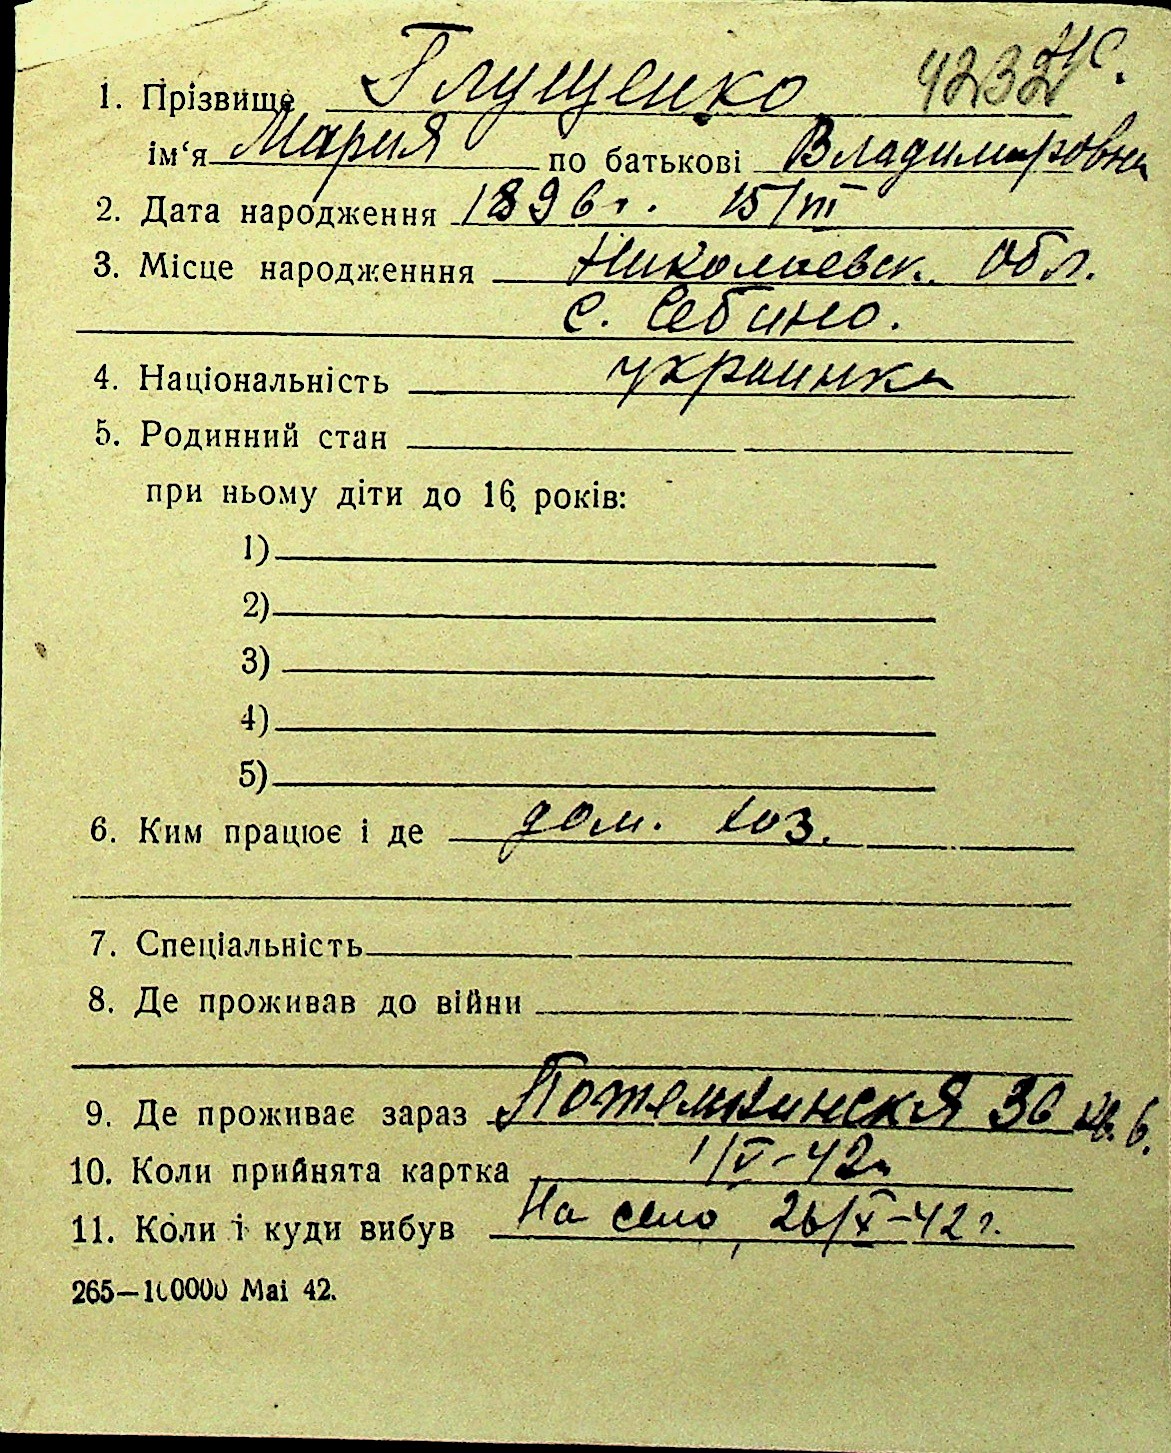 1. Прізвище Глущенко 4232 НС.
ім'я Мария по батькові Владимировна
2. Дата народження 1896 г. 15/III
3. Місце народженння Николаевск. обл.
с. Себино.
4. Національність украинка
5. Родинний стан
при ньому діти до 16 років:
1)
2)
3)
4)
5)
6. Ким працює і де дом. хоз.
7. Спеціальність
8. Де проживав до війни
9. Де проживає зараз Потемкинская 36 кв. 6.
10. Коли прийнята картка 1/V-42г
11. Коли і куди вибув На село, 26/X-42 г.
265—100000 Mai 42.